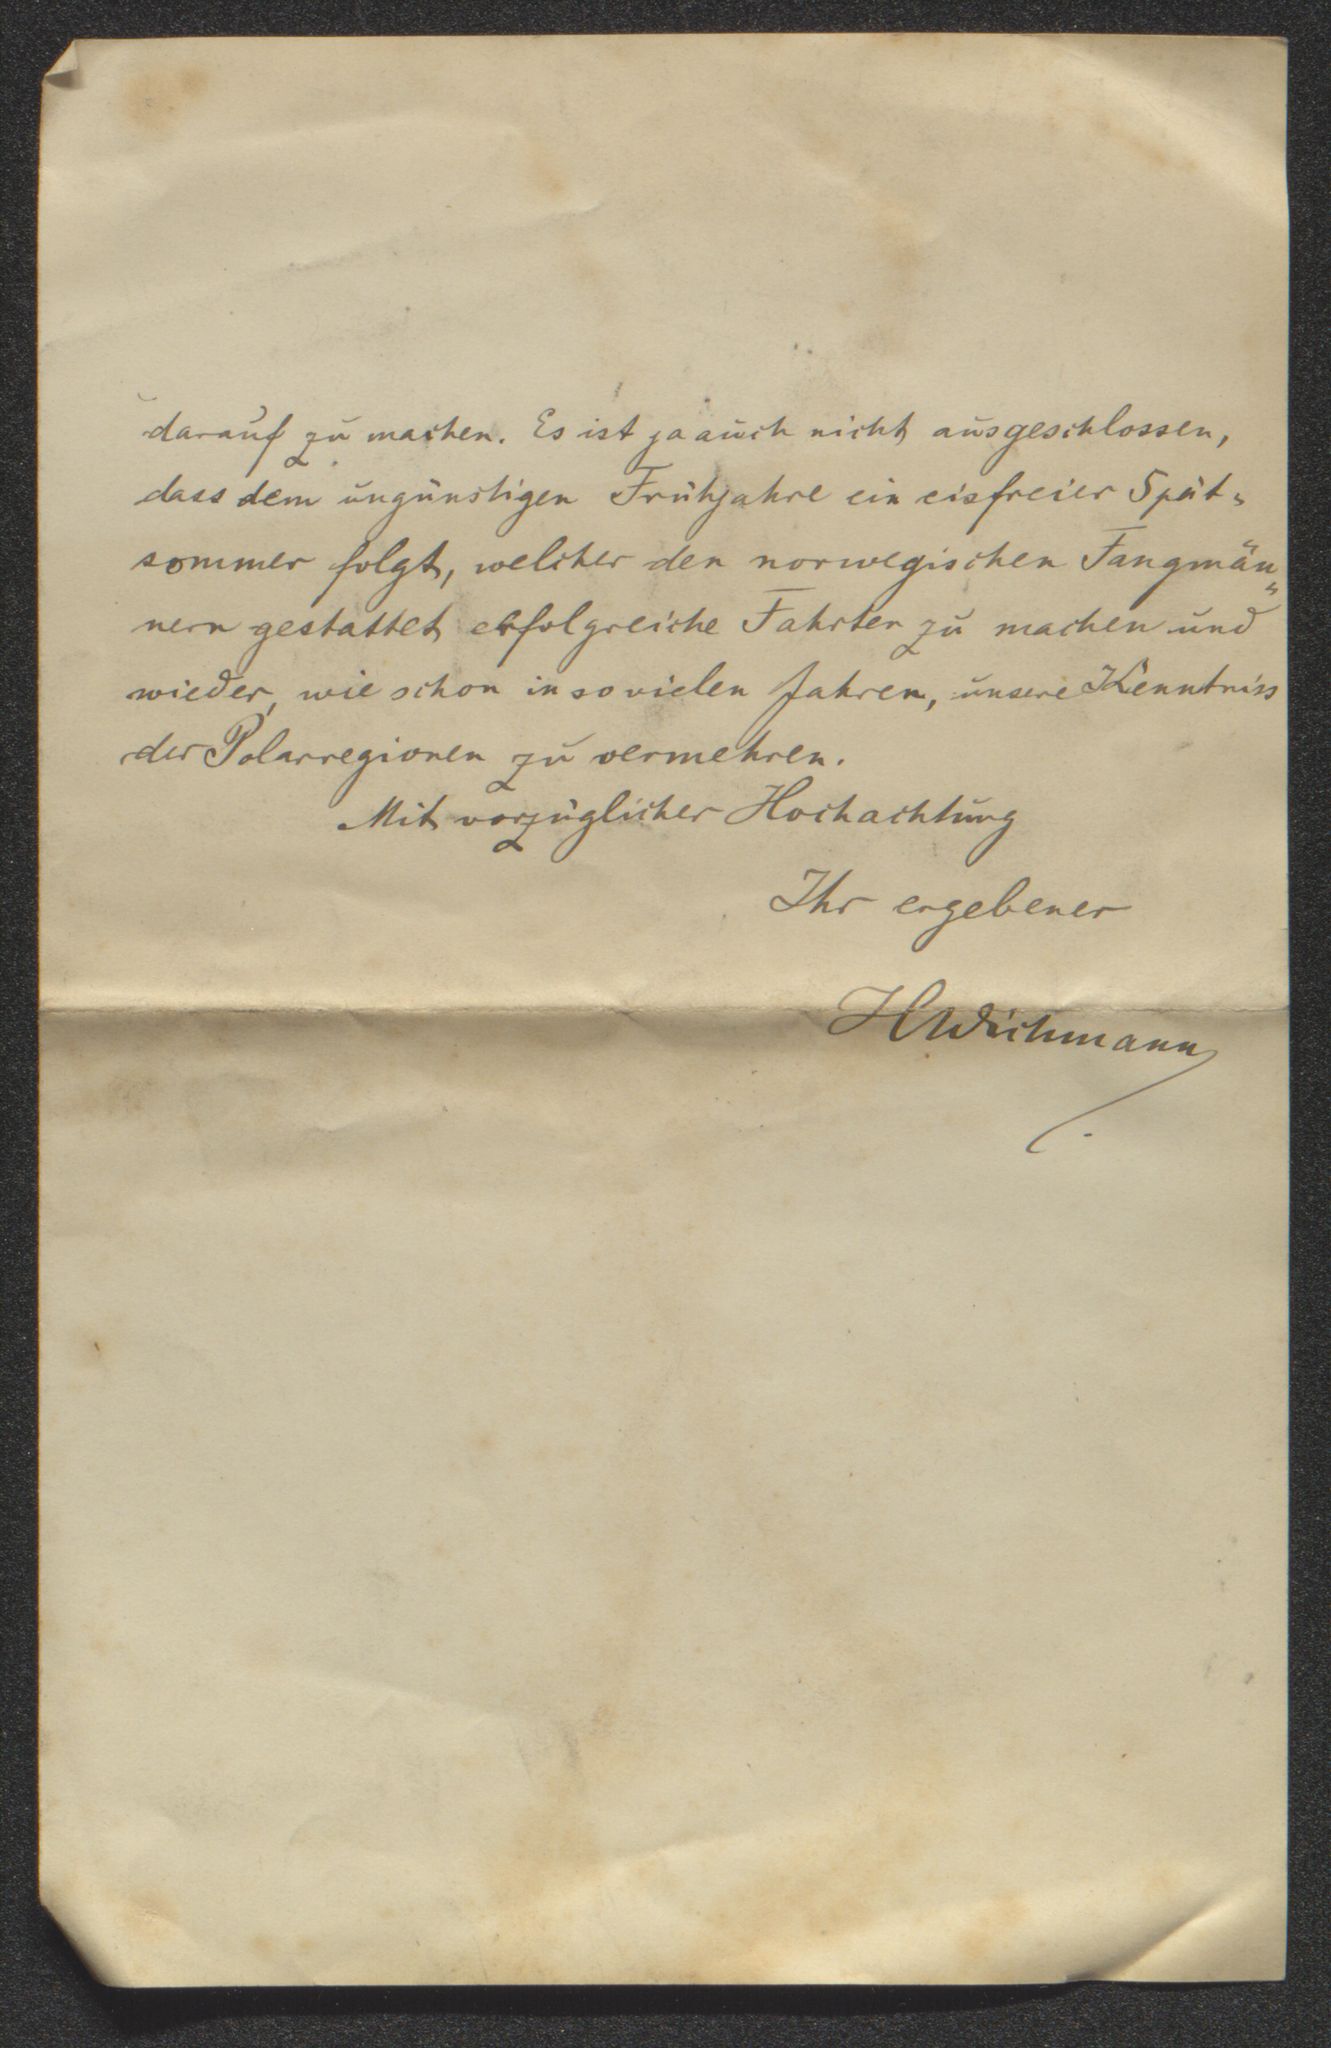 darauf zu machen. Es ist ja auch nicht ausgeschlossen,
dass dem ungünstigen Frühjahre ein eisfreier Spät-
sommer folgt, welcher den norwegischen Fangmän-
nern gestattet erfolgreiche Fahrten zu machen und
wieder, wie schon in so vielen Jahren, unsere Kenntniss
der Polarregionen zu vermehren.
Mit vorzüglicher Hochachtung
Ihr ergebener
HWichmann